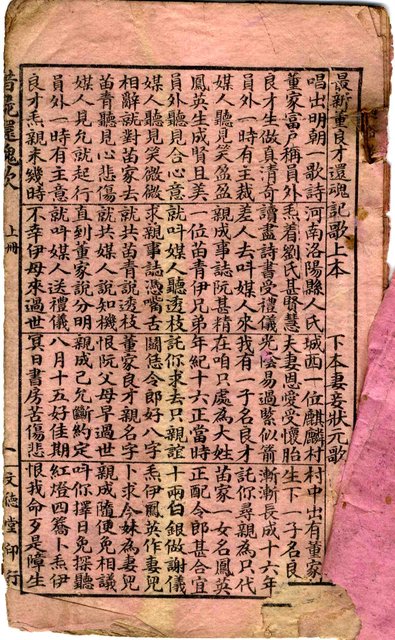 最新董良才還魂記歌上本　下本妻妾狀元歌
唱出明朝　歌詩　河南洛陽縣人氏　城西一位麒麟村　村中出有董家
董家富戶稱員外　𤆬着劉氏甚賢慧　夫妻恩愛受懷胎　生下一子名良
良才生做真清奇　讀盡詩書受禮儀　光陰易過緊似箭　漸漸長成十六年
員外一時有主裁　差人去叫媒人來　我有一子名良才　託你尋親為只代
媒人聽見笑盈盈　親成事誌阮甚精　在咱只處為大姓　苗家一女名鳳英
鳳英生成賢且美　一位苗青伊兄弟　年紀十六正當時　正配令郎甚合宜
員外聽見合心意　就叫媒人聽透枝　託你求去只親誼　十兩白銀做謝儀
媒人聽見笑微微　求親事誌憑嘴舌　鬪恁令郎好八字　𤆬伊鳳英作妻兒
相辭就對苗家去　就共苗青說透枝　董家良才親名字　卜求令妹為妻兒
苗青聽見心悲傷　就共媒人說知機　恨阮父母早過世　親成隨便免相議
媒人見允就起行　直到董家說分明　親成已允斷約定　叫你擇日免探聽
員外一時有主意　就叫媒人送禮儀　八月十五好佳期　紅燈四轎卜𤆬伊
良才𤆬親未幾時　不幸伊母來過世　冥日書房苦傷悲　恨我命歹是障生
還魂　上冊　一　文德堂印行